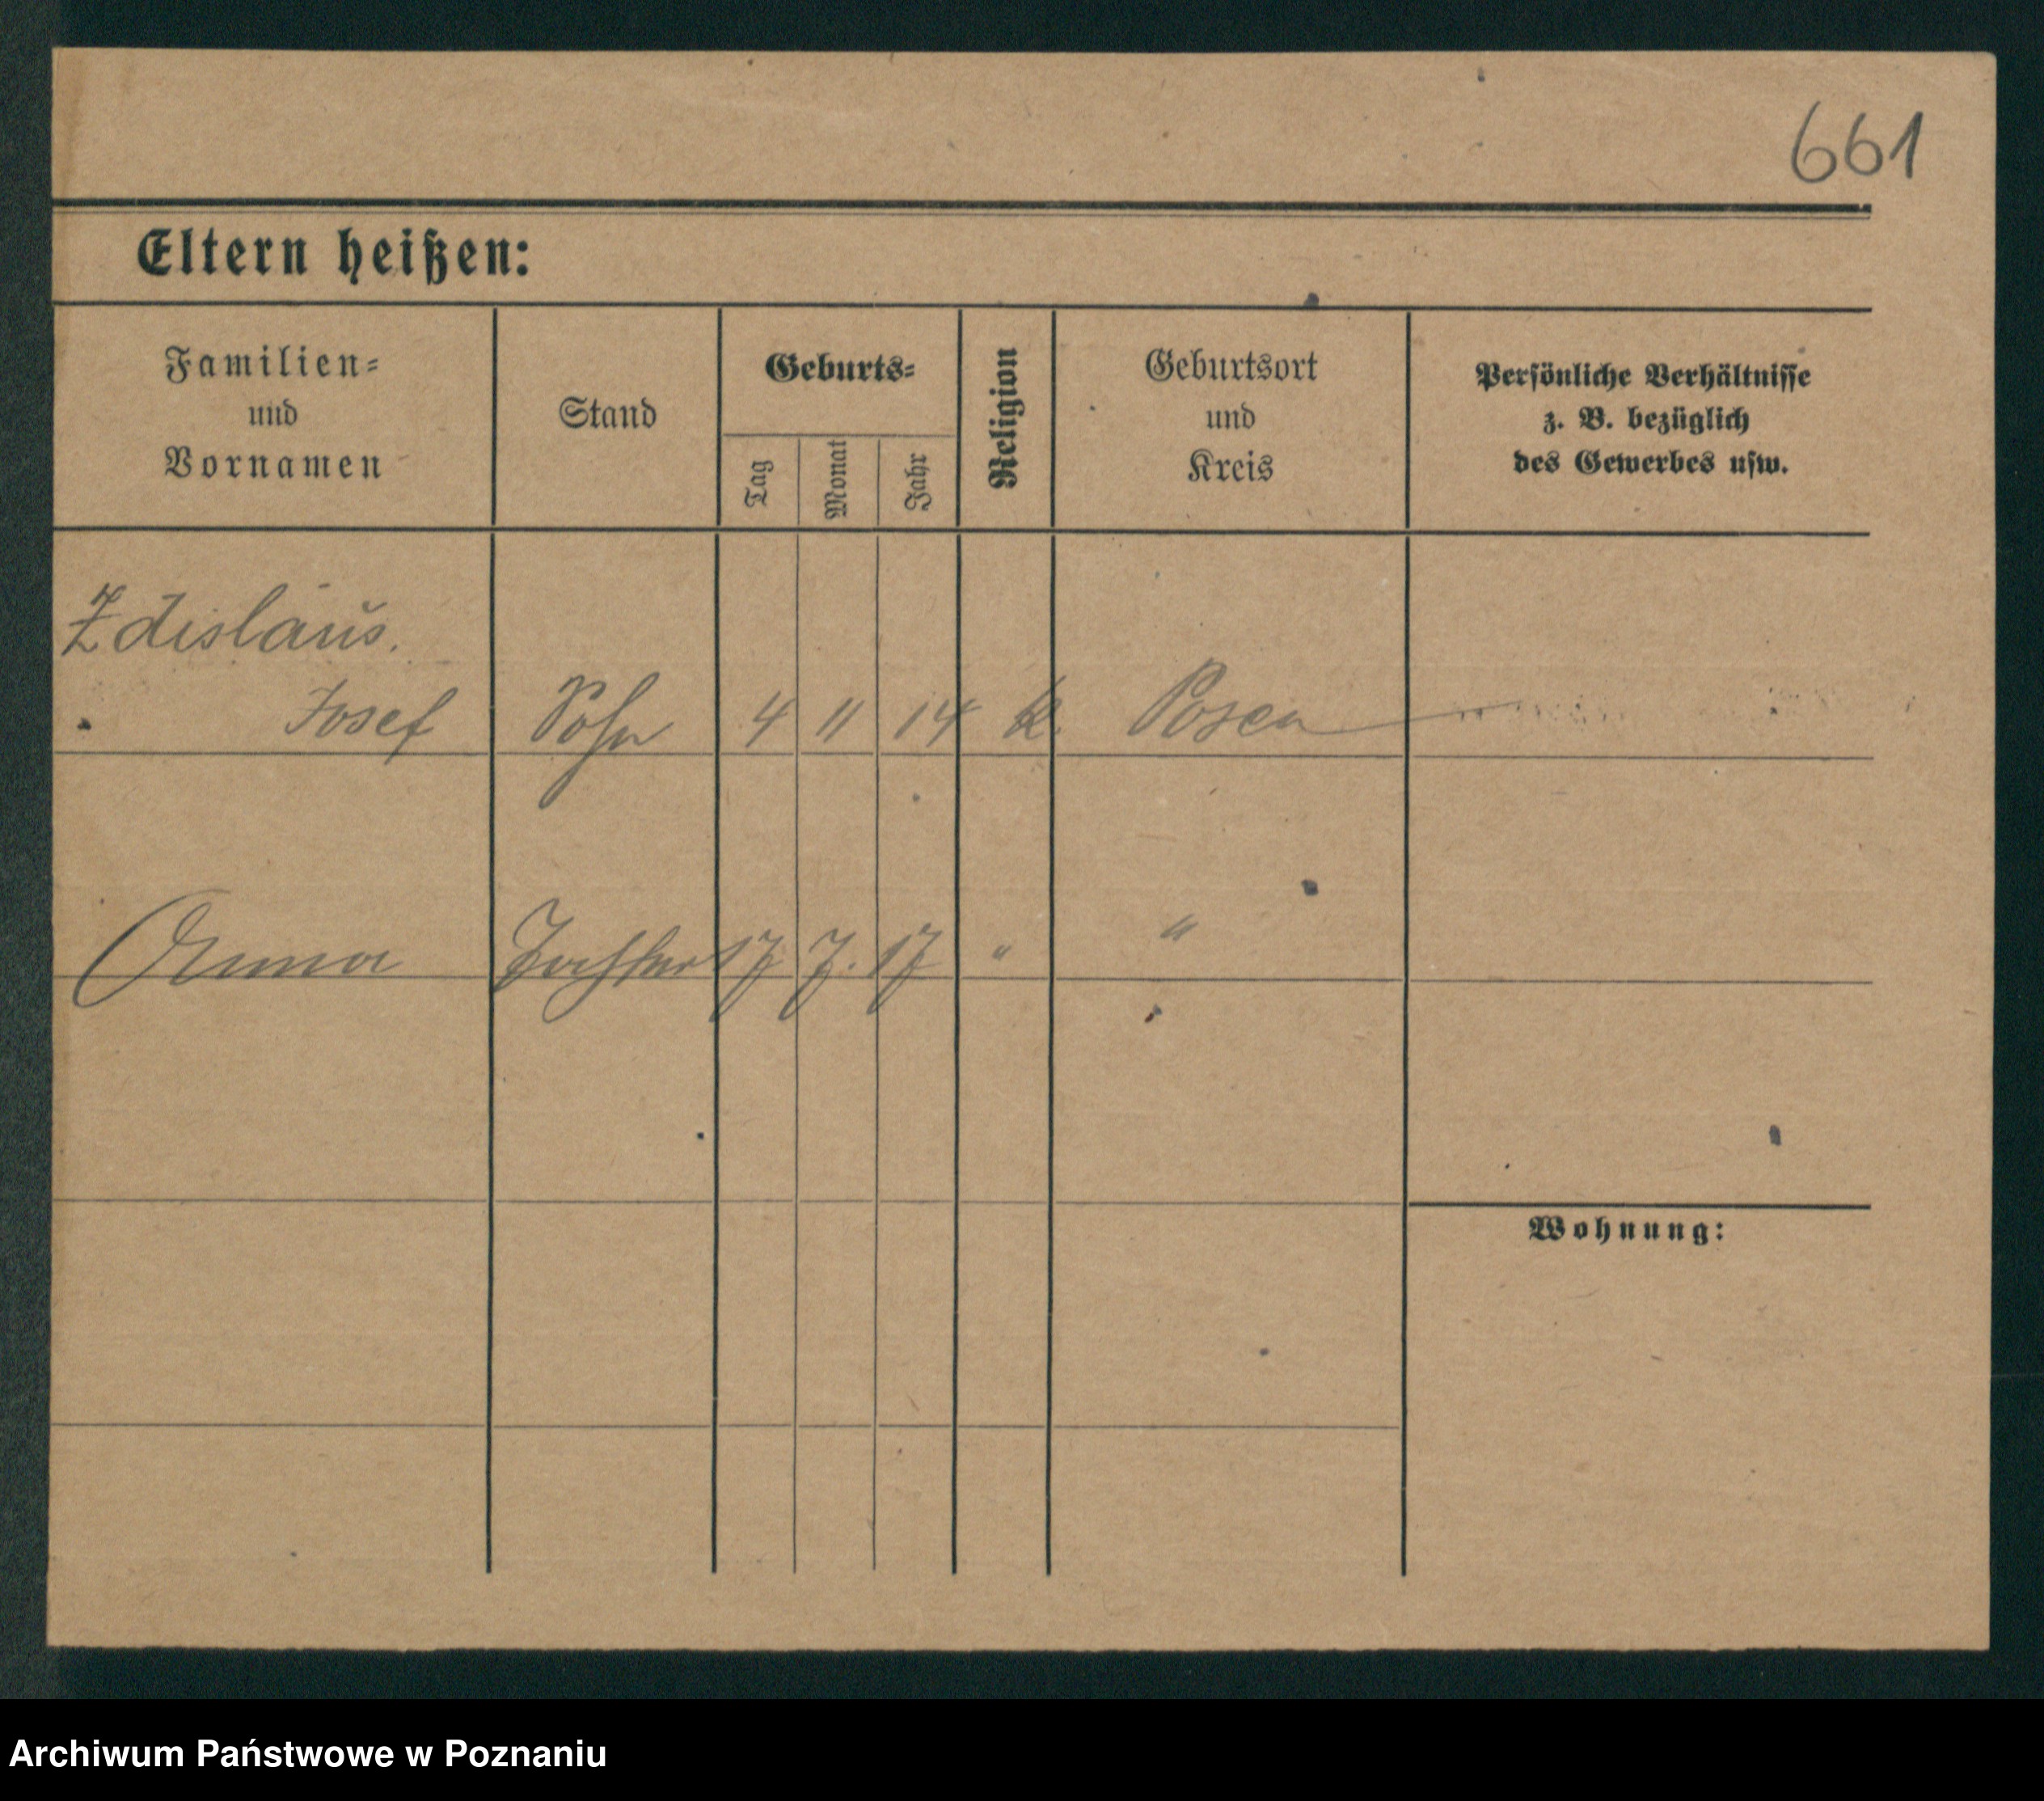 661
Eltern heißen:
Familien-
und
Vornamen
Stand
Geburts-
Tag
Monat
Jahr
Religion
Geburtsort
und
Kreis
Persönliche Verhältnisse
z. B. bezüglich
des Gewerbes usw.
Zdislaus.
Josef Sohn 4 11 14 k. Posen
Anna Tochter 17 7. 17 " "
Wohnung:
Archiwum Państwowe w Poznaniu